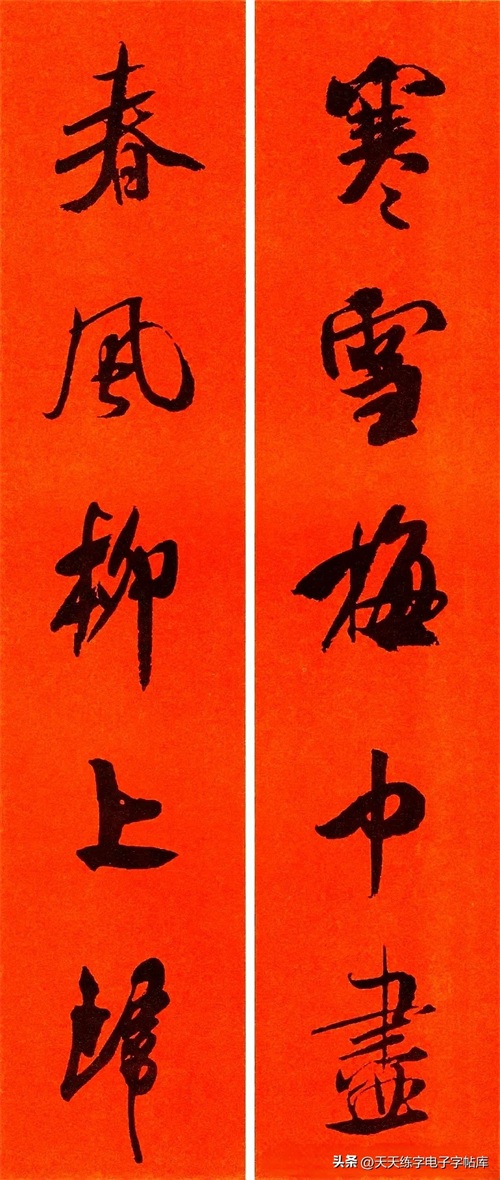 寒雪梅中盡
春風柳上歸
头条 @天天练字电子字帖库